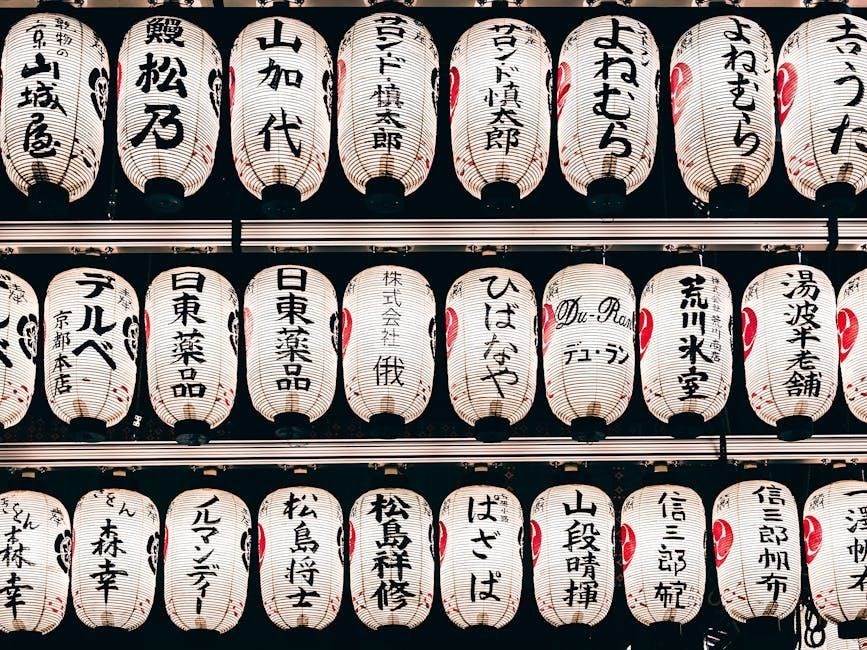 乾物の
京山城屋
鰻
松乃
山加代
サロンド慎太郎
サロンド慎太郎
よねむら
よねむら
吉うた
デルベ
京都本店
日東薬品
日東薬品
株式会社
俄
ひばなや
Du-Ran
デュ・ラン
荒川氷室
湯波半老舗
ぎをん
森幸
ぎをん
森幸
ノルマンディー
松島将士
松島祥修
はざぱ
山段晴揮
信三郎
信三郎帆布